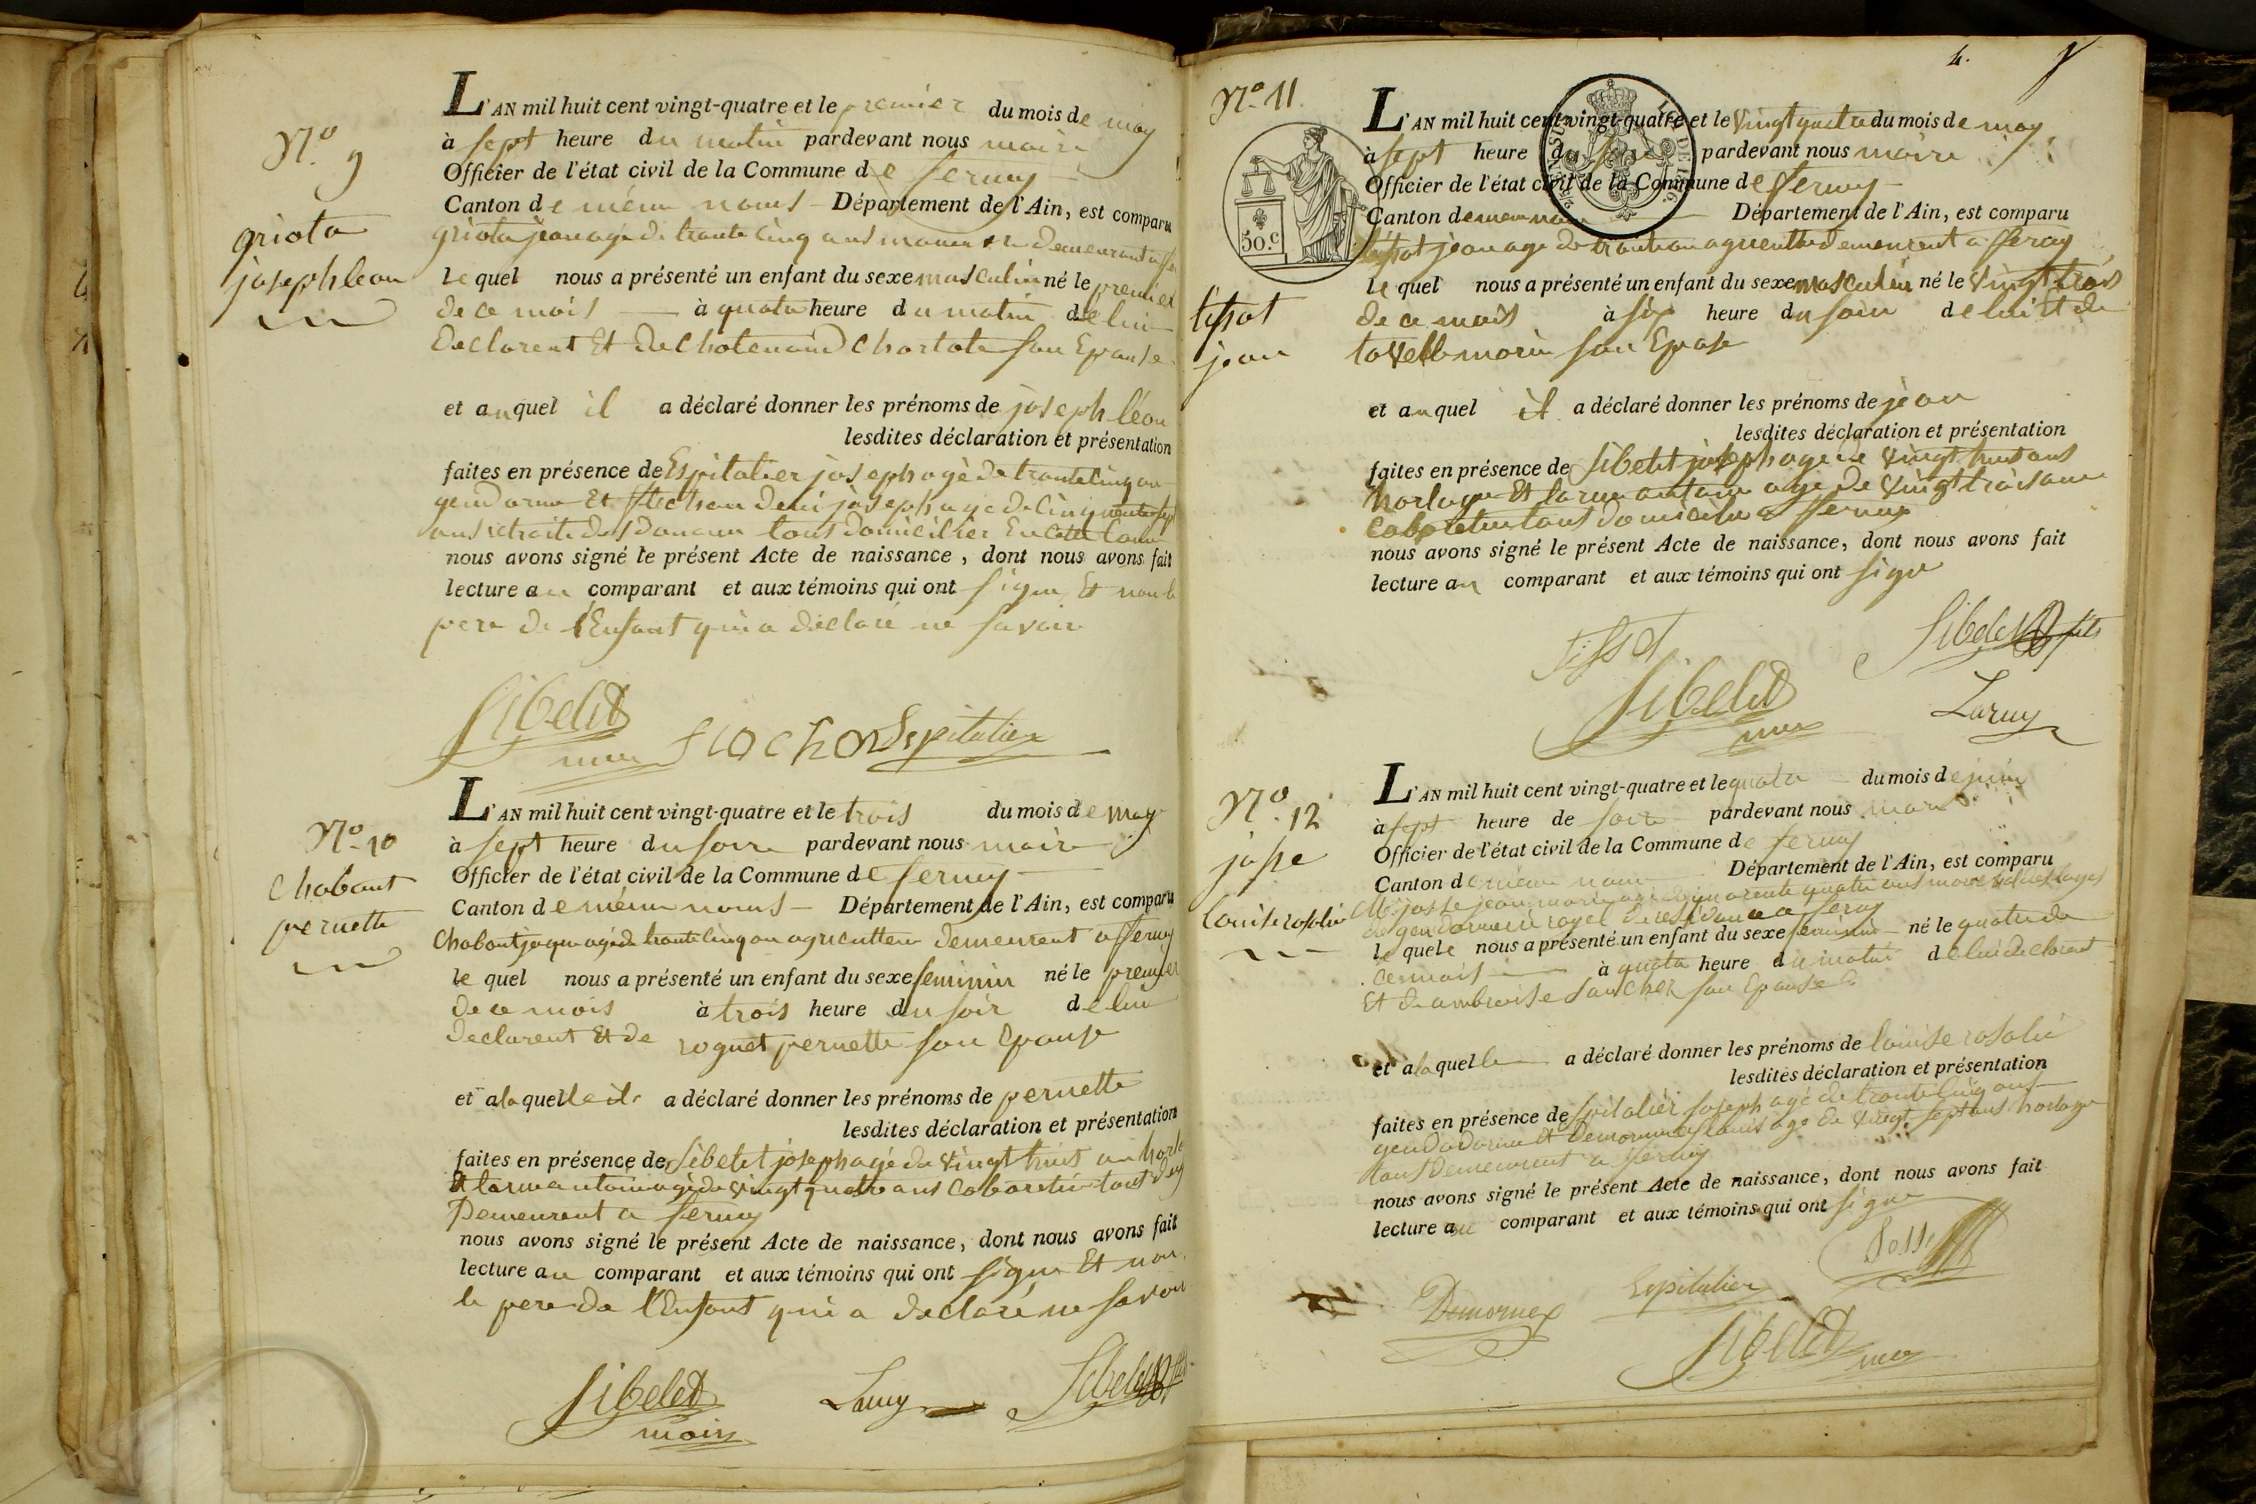 N.º 9
griota
joseph leon
L'AN mil huit cent vingt-quatre et le premier du mois de may
à sept heure du matin pardevant nous maire
Officier de l'état civil de la Commune de ferney
Canton de même noms Département de l'Ain, est comparu
griota jean agé de trante cinq ans demeurant a
le quel nous a présenté un enfant du sexe masculin né le premier
de ce mois à quatre heure du matin de lui
declarent Et de chotenoud chartote son Epouse
et auquel il a déclaré donner les prénoms de joseph léon
lesdites déclaration et présentation
faites en présence de Espitalier joseph agé de trante cinq an
gendarme Et joseph age de cinquante sept
ans retraite des douane tous domicilier En cette
nous avons signé le présent Acte de naissance, dont nous avons fait
lecture au comparant et aux témoins qui ont signe Et non le
pere de l'Enfant qui a déclaré ne savoir
Sibelet
maire flochon Espitalier
N.º 10
chabout
pernette
L'AN mil huit cent vingt-quatre et le trois du mois de may
à sept heure du soire pardevant nous maire
Officier de l'état civil de la Commune de ferney
Canton de même noms Département de l'Ain, est comparu
chabout jaque agé de trante cinq an agriculteur demeurent a ferney
le quel nous a présenté un enfant du sexe feminin né le premier
de ce mois à trois heure du soir de lui
declarent Et de roguet pernette son Epouse
et a la quelle il a déclaré donner les prénoms de pernette
lesdites déclaration et présentation
faites en présence de Sibelet joseph agé de vingt huit an
Et larue antoine agé de vingt quatre ans cabaretier tout deux
Demeurent a ferney
nous avons signé le présent Acte de naissance, dont nous avons fait
lecture au comparant et aux témoins qui ont signe Et non
le pere de l'Enfant qui a declaré ne savoir
Sibelet
maire Laruy Sibelet fils
4.
N.º 11
50.c
DE 1816.
tissot
jean
L'AN mil huit cent vingt-quatre et le vingt quatre du mois de may
à sept heure du soire pardevant nous maire
Officier de l'état civil de la Commune de ferney
Canton de meme nom Département de l'Ain, est comparu
tissot jean age de demeurent a ferney
le quel nous a présenté un enfant du sexe masculin né le vingt trois
de ce mois à six heure du soir de lui et de
morin son Epose
et auquel il a déclaré donner les prénoms de jean
lesdites déclaration et présentation
faites en présence de Sibelet joseph age de vingt huit ans
horloger Et larue antoine age de vingt trois ans
cabaretier tous domicilie a ferney
nous avons signé le présent Acte de naissance, dont nous avons fait
lecture au comparant et aux témoins qui ont signe
Tissot Sibelet fils
Sibelet
maire Laruy
N.º 12
josse
louise rosalie
L'AN mil huit cent vingt-quatre et le quatre du mois de juin
à sept heure de soire pardevant nous maire
Officier de l'état civil de la Commune de ferney
Canton de même nom Département de l'Ain, est comparu
M. josse jean marie age de quarente quatre ans
de gendarmerie royel de residance a ferney
le quele nous a présenté un enfant du sexe feminin né le quatre de
ce mois à quatre heure du matin de lui declarent
Et de ambroise son Epouse
et a la quelle a déclaré donner les prénoms de louise rosalie
lesdites déclaration et présentation
faites en présence de Spitalier joseph age de trante cinq ans
gendadarme et Demornex louis age de vingt sept ans horloger
tous demeurent a ferney
nous avons signé le présent Acte de naissance, dont nous avons fait
lecture au comparant et aux témoins qui ont signe
Josse
Demornex Espitalier
Sibelet
maire